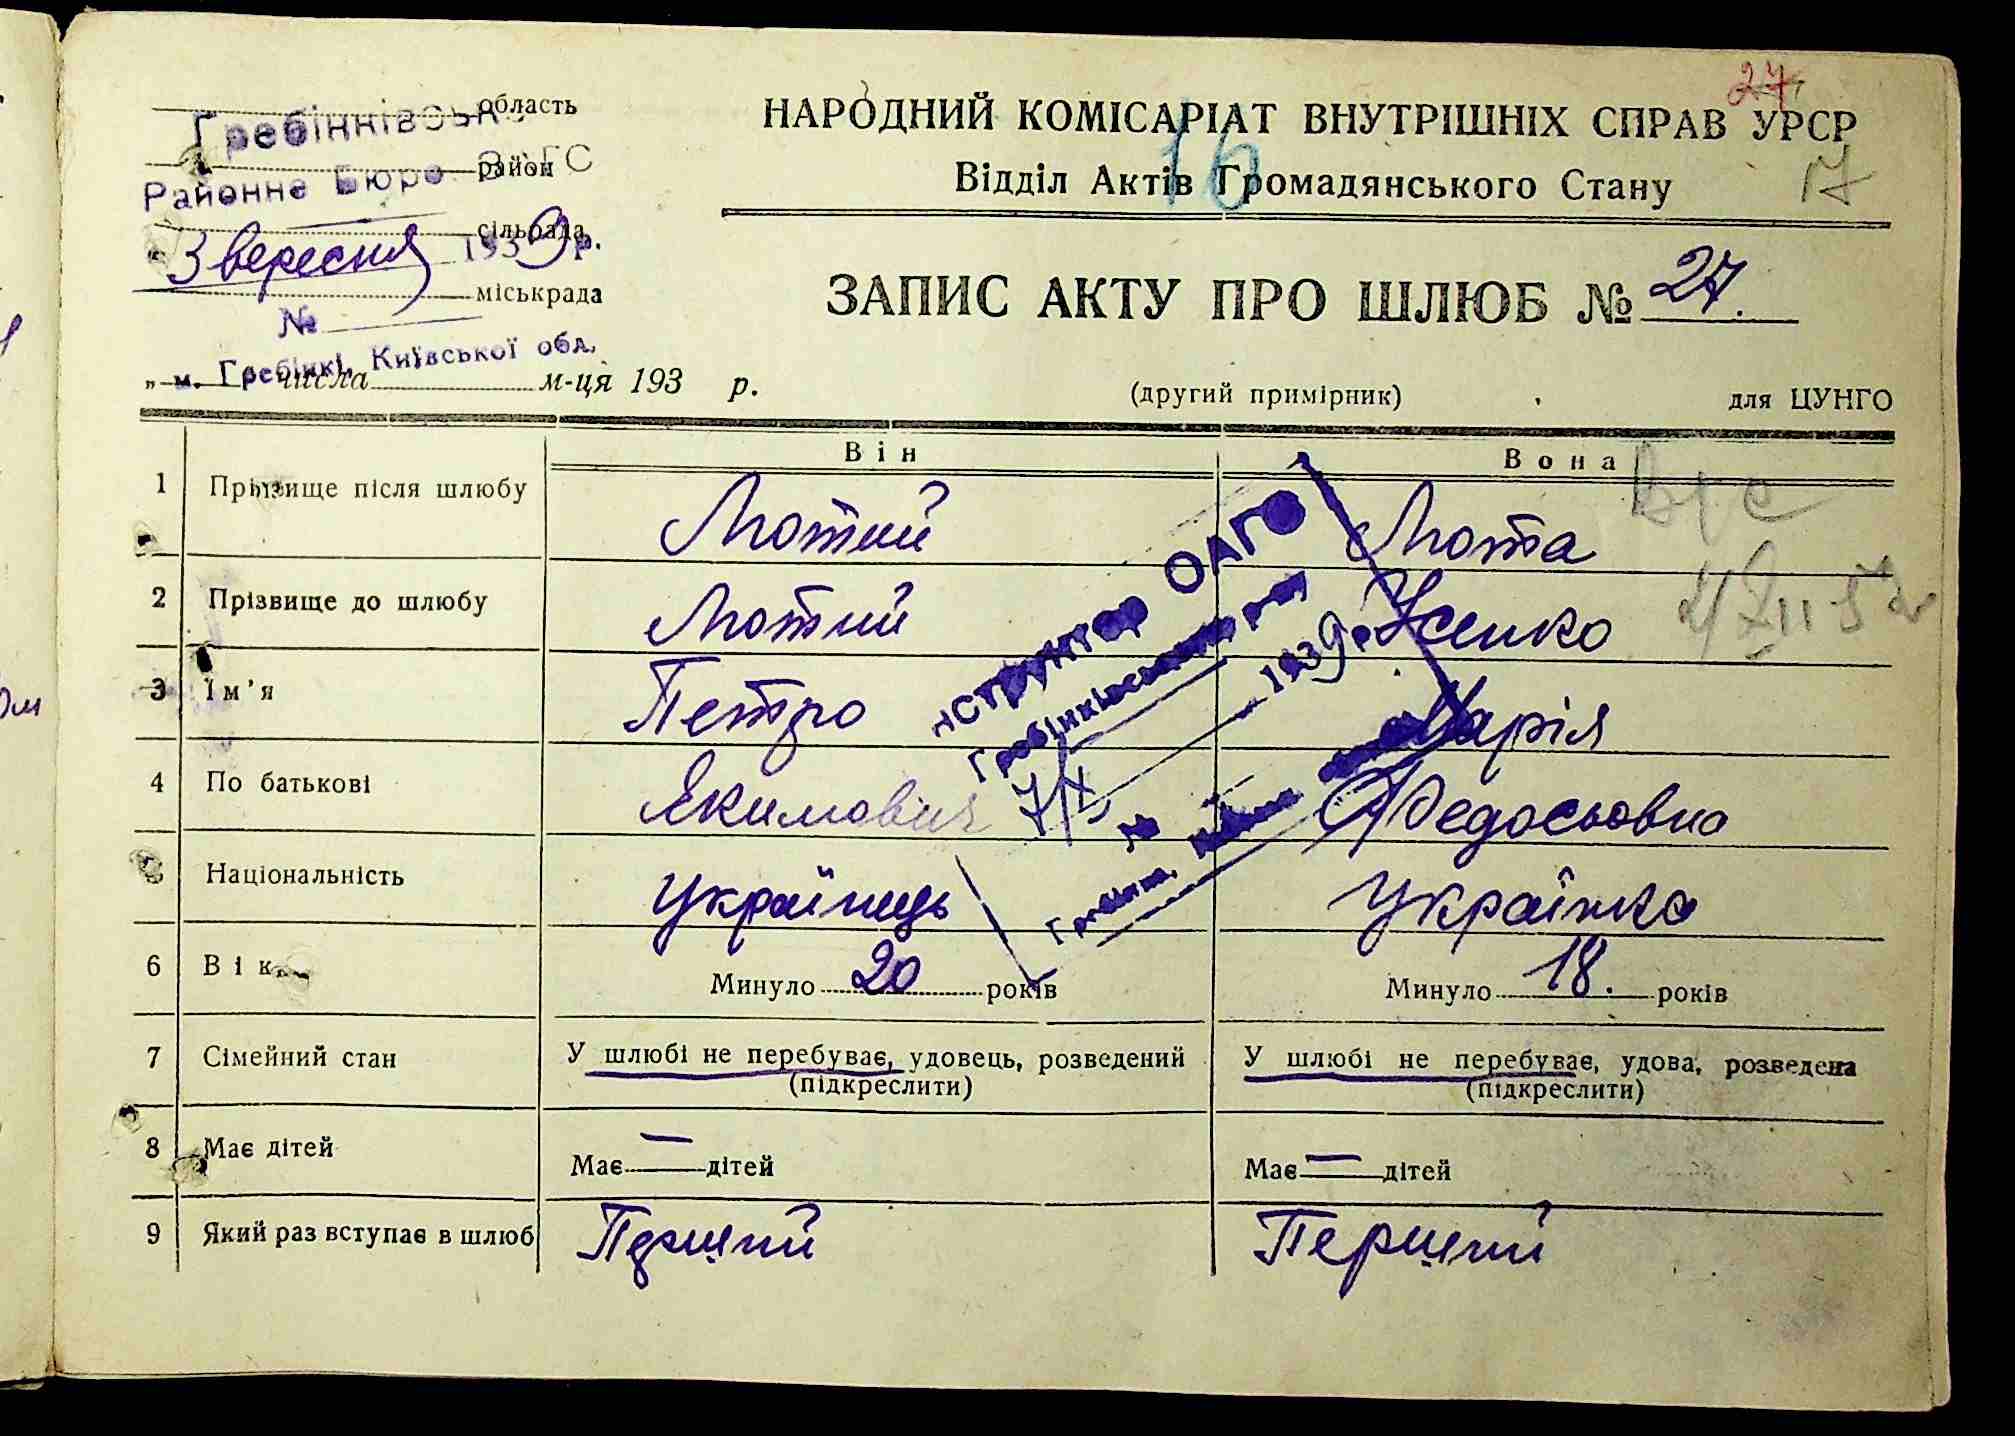 27
НАРОДНИЙ КОМІСАРІАТ ВНУТРІШНІХ СПРАВ УРСР
Відділ Актів Громадянського Стану
16
17
область
Гребінківськ
район
Районне Бюро ЗАГС
сільрада
3 вересня 1939 р.
міськрада
№
м. Гребінкі, Київської обл.
„ числа м-ця 193 р.
ЗАПИС АКТУ ПРО ШЛЮБ № 27.
(другий примірник)
для ЦУНГО
Він
Вона
1 Прізвище після шлюбу Лютий Люта
2 Прізвище до шлюбу Лютий Усенко
3 Ім'я Петро Марія
4 По батькові Якимович Федосьовна
Національність Українець Українка
6 Вік Минуло 20 років Минуло 18. років
7 Сімейний стан У шлюбі не перебуває, удовець, розведений У шлюбі не перебуває, удова, розведена
(підкреслити) (підкреслити)
8 Має дітей Має — дітей Має — дітей
9 Який раз вступає в шлюб Перший Перший
нструктор ОАГС
Гребінківського
1939 р.
№